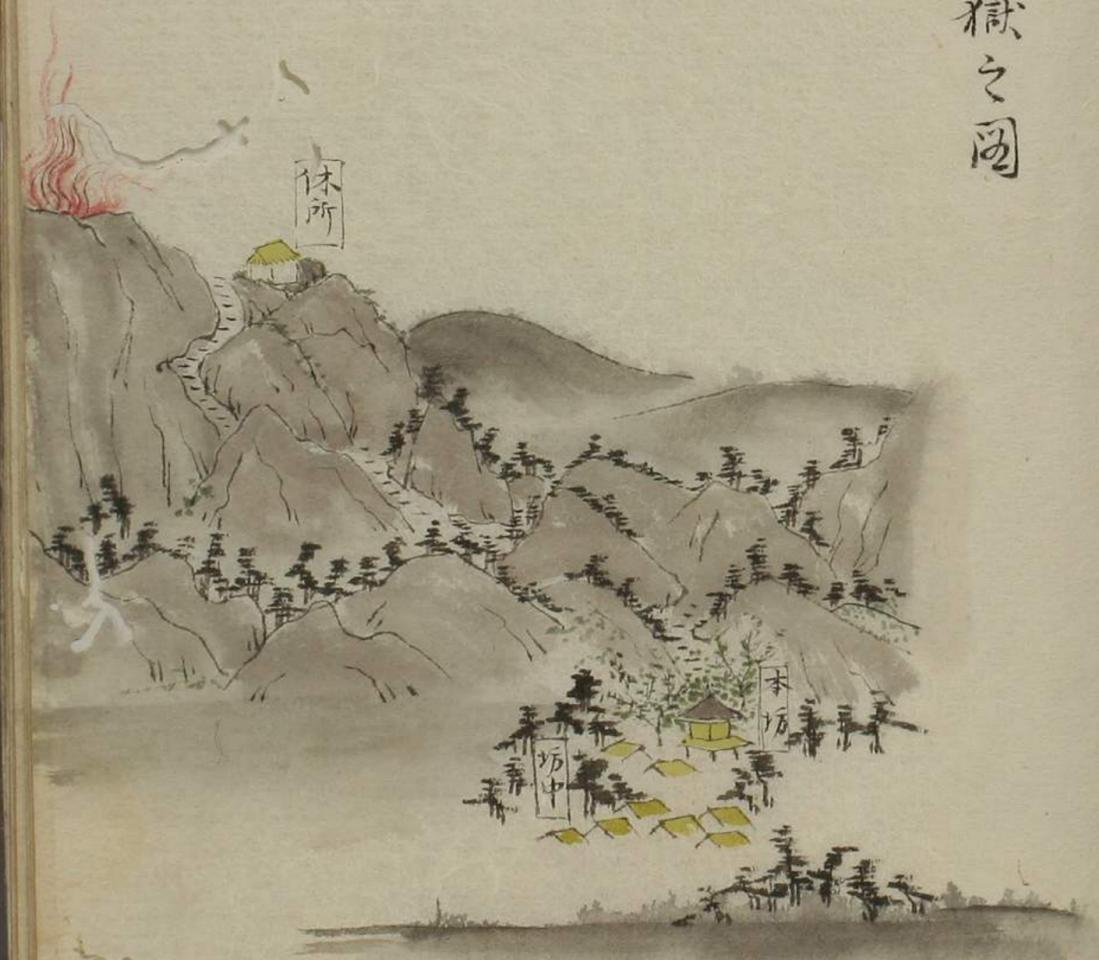 獄之図
休所
本坊
坊中